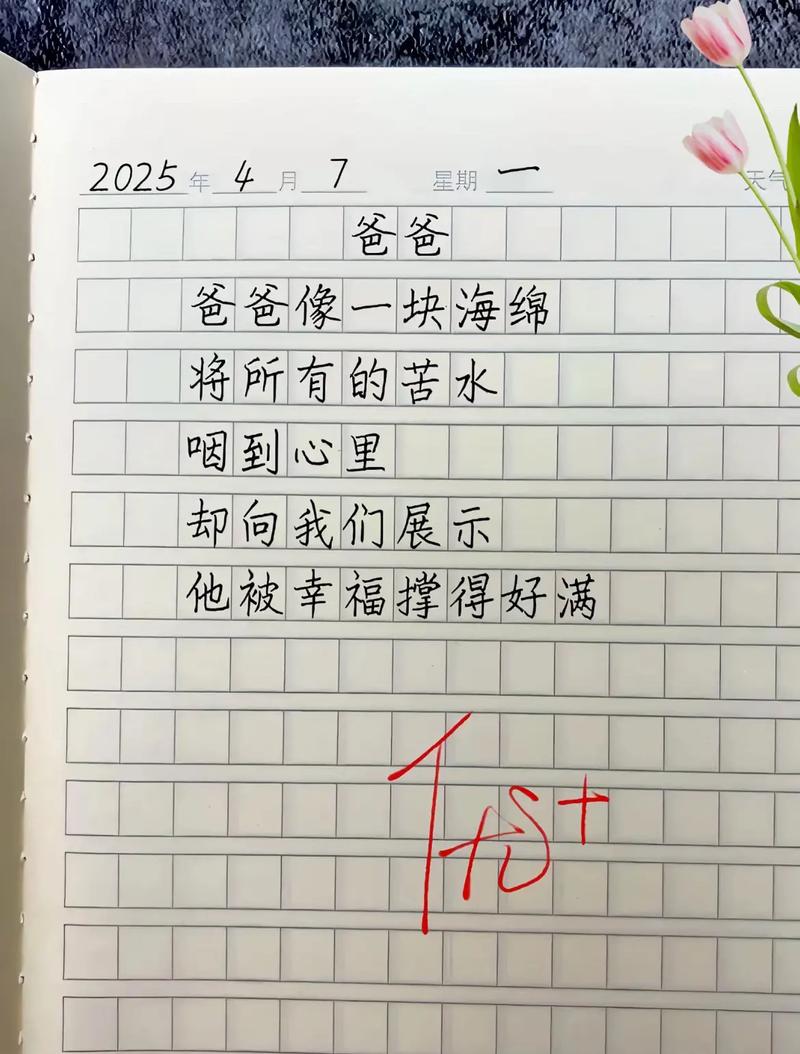 2025年 4 月 7 星期 一 天气
爸爸
爸爸像一块海绵
将所有的苦水
咽到心里
却向我们展示
他被幸福撑得好满
优+